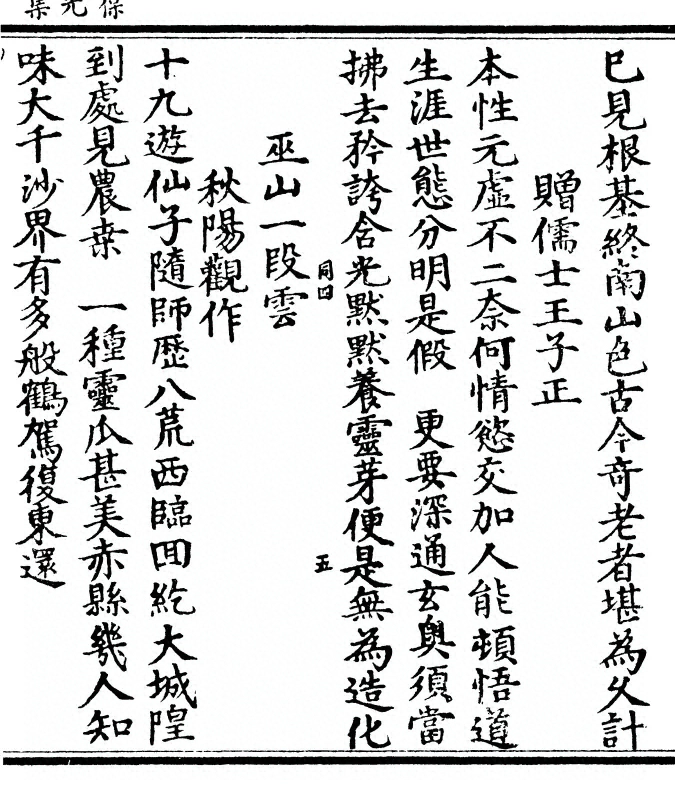 已見根基終南山色古今奇老者堪為久計
贈儒士王子正
本性元虛不二奈何情慾交加人能頓悟道
生涯世態分明是假　更要深通玄奧須當
拂去矜誇含光默默養靈芽便是無為造化
同四
五
巫山一段雲
秋陽觀作
十九遊仙子隨師歷八荒西臨囬紇大城隍
到處見農桒　一種靈瓜甚美赤縣幾人知
味大千沙界有多般鶴駕復東還